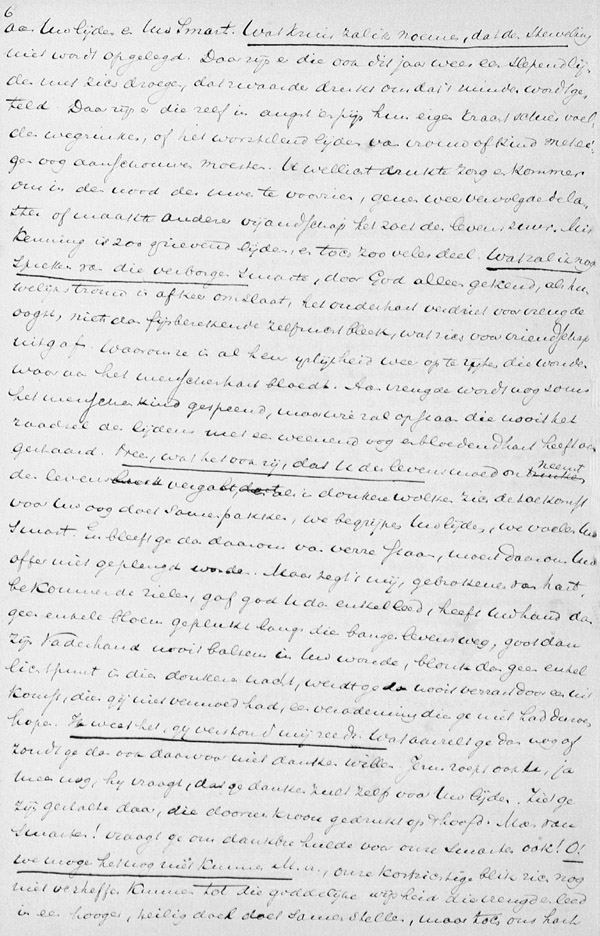 6
aan Uw lijden en Uw Smart. Wat kruis zal ik noemen, dat der Sterveling
niet wordt opgelegd. Daar zijn er die ook dit jaar weer een slepend lij-
den met zich droegen, dat zwaarder drukt omdat 't minder wordt ge-
teld. Daar zijn er die zelf in angst en pijn hun eigen kracht voel-
den wegzinken, of het worstelend lijden van vrouw of kind met ei-
gen oog aanschouwen moesten. U wellicht drukte zorg en kommer
om in den nood der uwen te voorzien, gene wee vervolgde de la-
ster of maakte anderer vijandschap het zoet des levens zuur. Mis-
kenning is zoo grievend lijden, en toch zoo veler deel. Wat zal ik nog
spreken van die verborgen Smarte, door God alleen gekend, als hu-
welijkstrouw in afkeer omslaat, het ouderhart verdriet voor vreugde
oogst, niets dan fijn berekende zelfzucht bleek, wat zich voor vriendschap
uitgaf. Waarom ze in al heur ijselijkheid weer op te rijten die wonde
waar aan het menschenhart bloedt. Aan vreugde wordt nog soms
het menschenkind gespeend, maar wie zal opstaan die nooit het
raadsel des lijdens met een weenend oog en bloedend hart heeft aan-
gestaard. Neen, wat het ook zij, dat U den levensmoed ontneemt
de levens vergalt, in donkere wolken zich de toekomst
voor Uw oog doet samenpakken, we begrijpen Uw lijden, we voelen Uw
Smart. En bleeft ge dan daarom van verre staan, moest daarom Uw
offer niet geplengd worden. Maar zegt 't mij, gebrokenen van hart,
bekommerde zielen, gaf god U dan enkel leed, heeft Uw hand dan
geen enkele bloem geplukt langs die bange levensweg, goot dan
zijn Vaderhand nooit balsem in Uw wonde, blonk dan geen enkel
lichtpunt in dien donkeren nacht, werdt ge nooit verrast door een uit-
komst, die gij niet vermoed had, een verademing die ge niet had durven
hopen. Ik weet het, gij verstondt mij reeds. Wat aarzelt ge dan nog of
zoudt ge dan ook daarvoor niet danken willen. Jezus roept ook U, ja
meer nog, hij vraagt, dat ge danken zult zelf voor Uw lijden. Ziet ge
zijn gestalte daar, die doornenkroon gedrukt op 't hoofd. Man van
Smarten! vraagt ge om dankbre hulde voor onze Smarten ook! O!
we mogen het nog niet kunnen M. H., onze kortzichtige blik zich nog
niet verheffen kunnen tot die goddelijke wijsheid die vreugd en leed
in een hooger, heilig doel doet samensmelten, maar toch ons hart